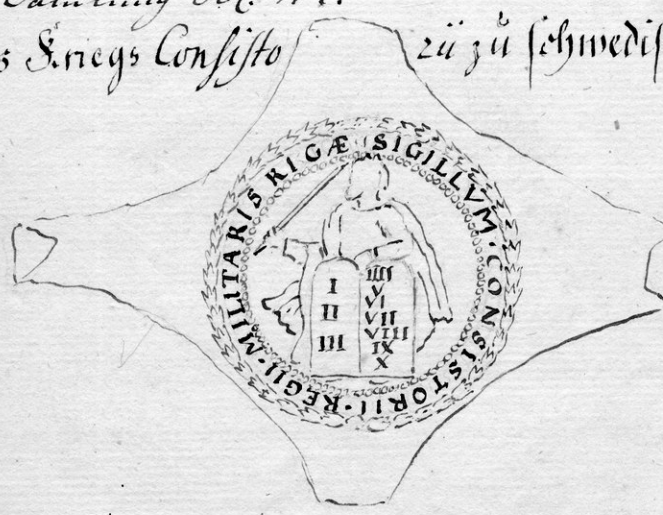 s Kriegs Consisto rii zu schwedis
SIGILLVM·CONSISTORII·REGII·MILITARIS RIGÆ
I IIII
II V
III VI
VII
VIII
IX
X